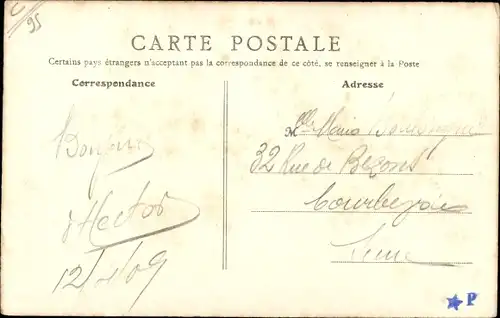 95
CARTE POSTALE
Certains pays étrangers n'acceptant pas la correspondance de ce côté, se renseigner à la Poste
Correspondance
Adresse
Bonjour
d'Hector
Mlle Maria
32 Rue de Bezons
Courbevoie
Seine
P